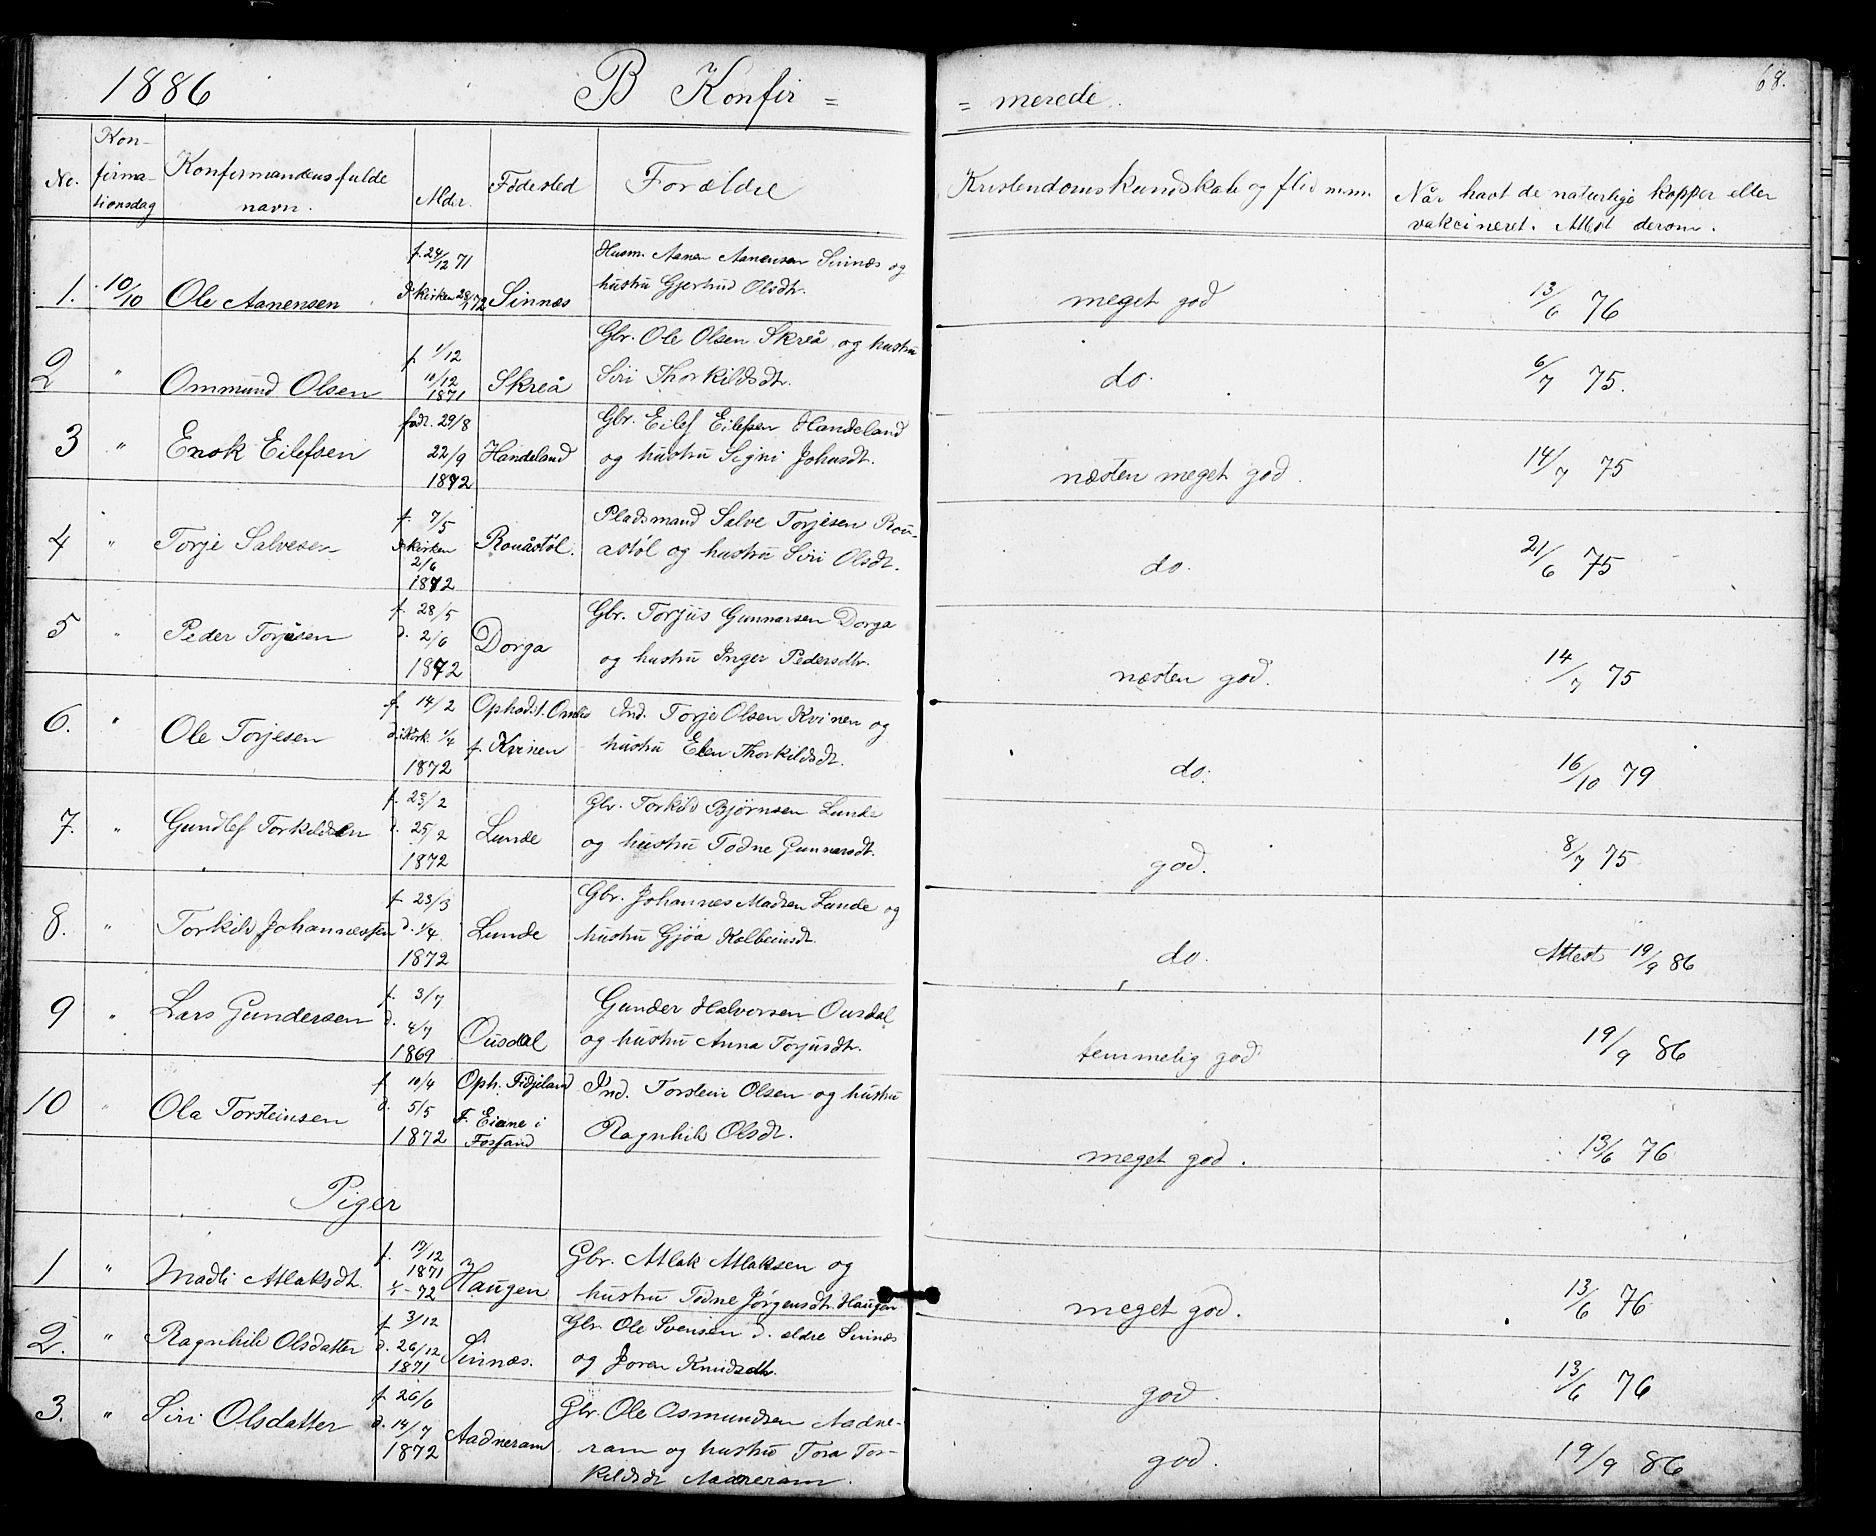 1886 B Konfir = = merede. 68.
No. Konfirmationsdag Konfirmandens fulde navn. Alder. Födested Forældre Kristendomskundskab og flid m.m. Når havt de naturlige kopper eller vakcineret. Attest derom.
f. 24/12 71 Husm. Aanen Aanensen Sinnes og
1. 10/10 Ole Aanensen i kirken 28/1 72 Sinnes hustru Gjertrud Olsdt. meget god 13/6 76
f. 1/12 Gbr. Ole Olsen Skreå og hustru
2 " Ommund Olsen 10/12 1871 Skreå Siri Thorkildsdt. do. 6/7 75.
född. 29/8 Gbr. Eilef Eilefsen Handeland
3 " Enok Eilefsen 22/9 1872 Handeland og hustru Signi Johnsdt. næsten meget god. 14/7 75
f. 7/5 Pladsmand Salve Torjesen Rou-
4 " Torje Salvesen i kirken 2/6 1872 Rouåstöl. astöl og hustru Siri Olsdt. do. 21/6 75
f. 28/5 Gbr. Torjus Gunnarsen Dorga
5 " Peder Torjusen d. 2/6 1872 Dorga og hustru Inger Pedersdtr. næsten god. 14/7 75
f. 14/2 Ophad. Ind. Torje Olsen Kvinen og
6. " Ole Torjesen d. i kirk. 1/4 1872 f. Kvinen hustru Elen Thorkildsdt. do. 16/10 79
f. 23/2 Gbr. Torkild Bjørnsen Lunde
7. " Gundlef Torkildsen d. 25/2 1872 Lunde og hustru Todne Gunnarsdt. god. 8/7 75
f. 23/3 Gbr. Johannes Madsen Lunde og
8. " Torkild Johannessen d. 1/4 1872 Lunde hustru Gjøa Kolbeinsdt. do. Attest 19/9 86
f. 3/7 Gunder Halvorsen Ousdal
9 " Lars Gundersen d. 4/7 1869 Ousdal og hustru Anna Torjusdt. temmelig god 19/9 86
f. 10/4 Oph. Fidjeland Ind. Torstein Olsen og hustru
10 " Ola Torsteinsen d. 5/5 1872 F. Eiane i Fossand Ragnhild Olsdt. meget god. 13/6 76
Piger
f. 17/12 1871 Gbr. Atlak Atlaksen og
1 " Madli Atlaksdt. - 72 Haugen hustru Todne Jörgensdt. Haugen meget god. 13/6 76
f. 3/12 Gbr. Ole Svensen d. eldre Sinnes
2. " Ragnhild Olsdatter d. 26/12 1871 Sinnes. og Joren Knudsdtr. god. 13/6 76
f. 26/6 Gbr. Ole Osmundsen Aadne-
3. " Siri Olsdatter d. 14/7 1872 Aadneram ram og hustru Tora Tor- god. 19/9 86
kildsdt Aadneram.